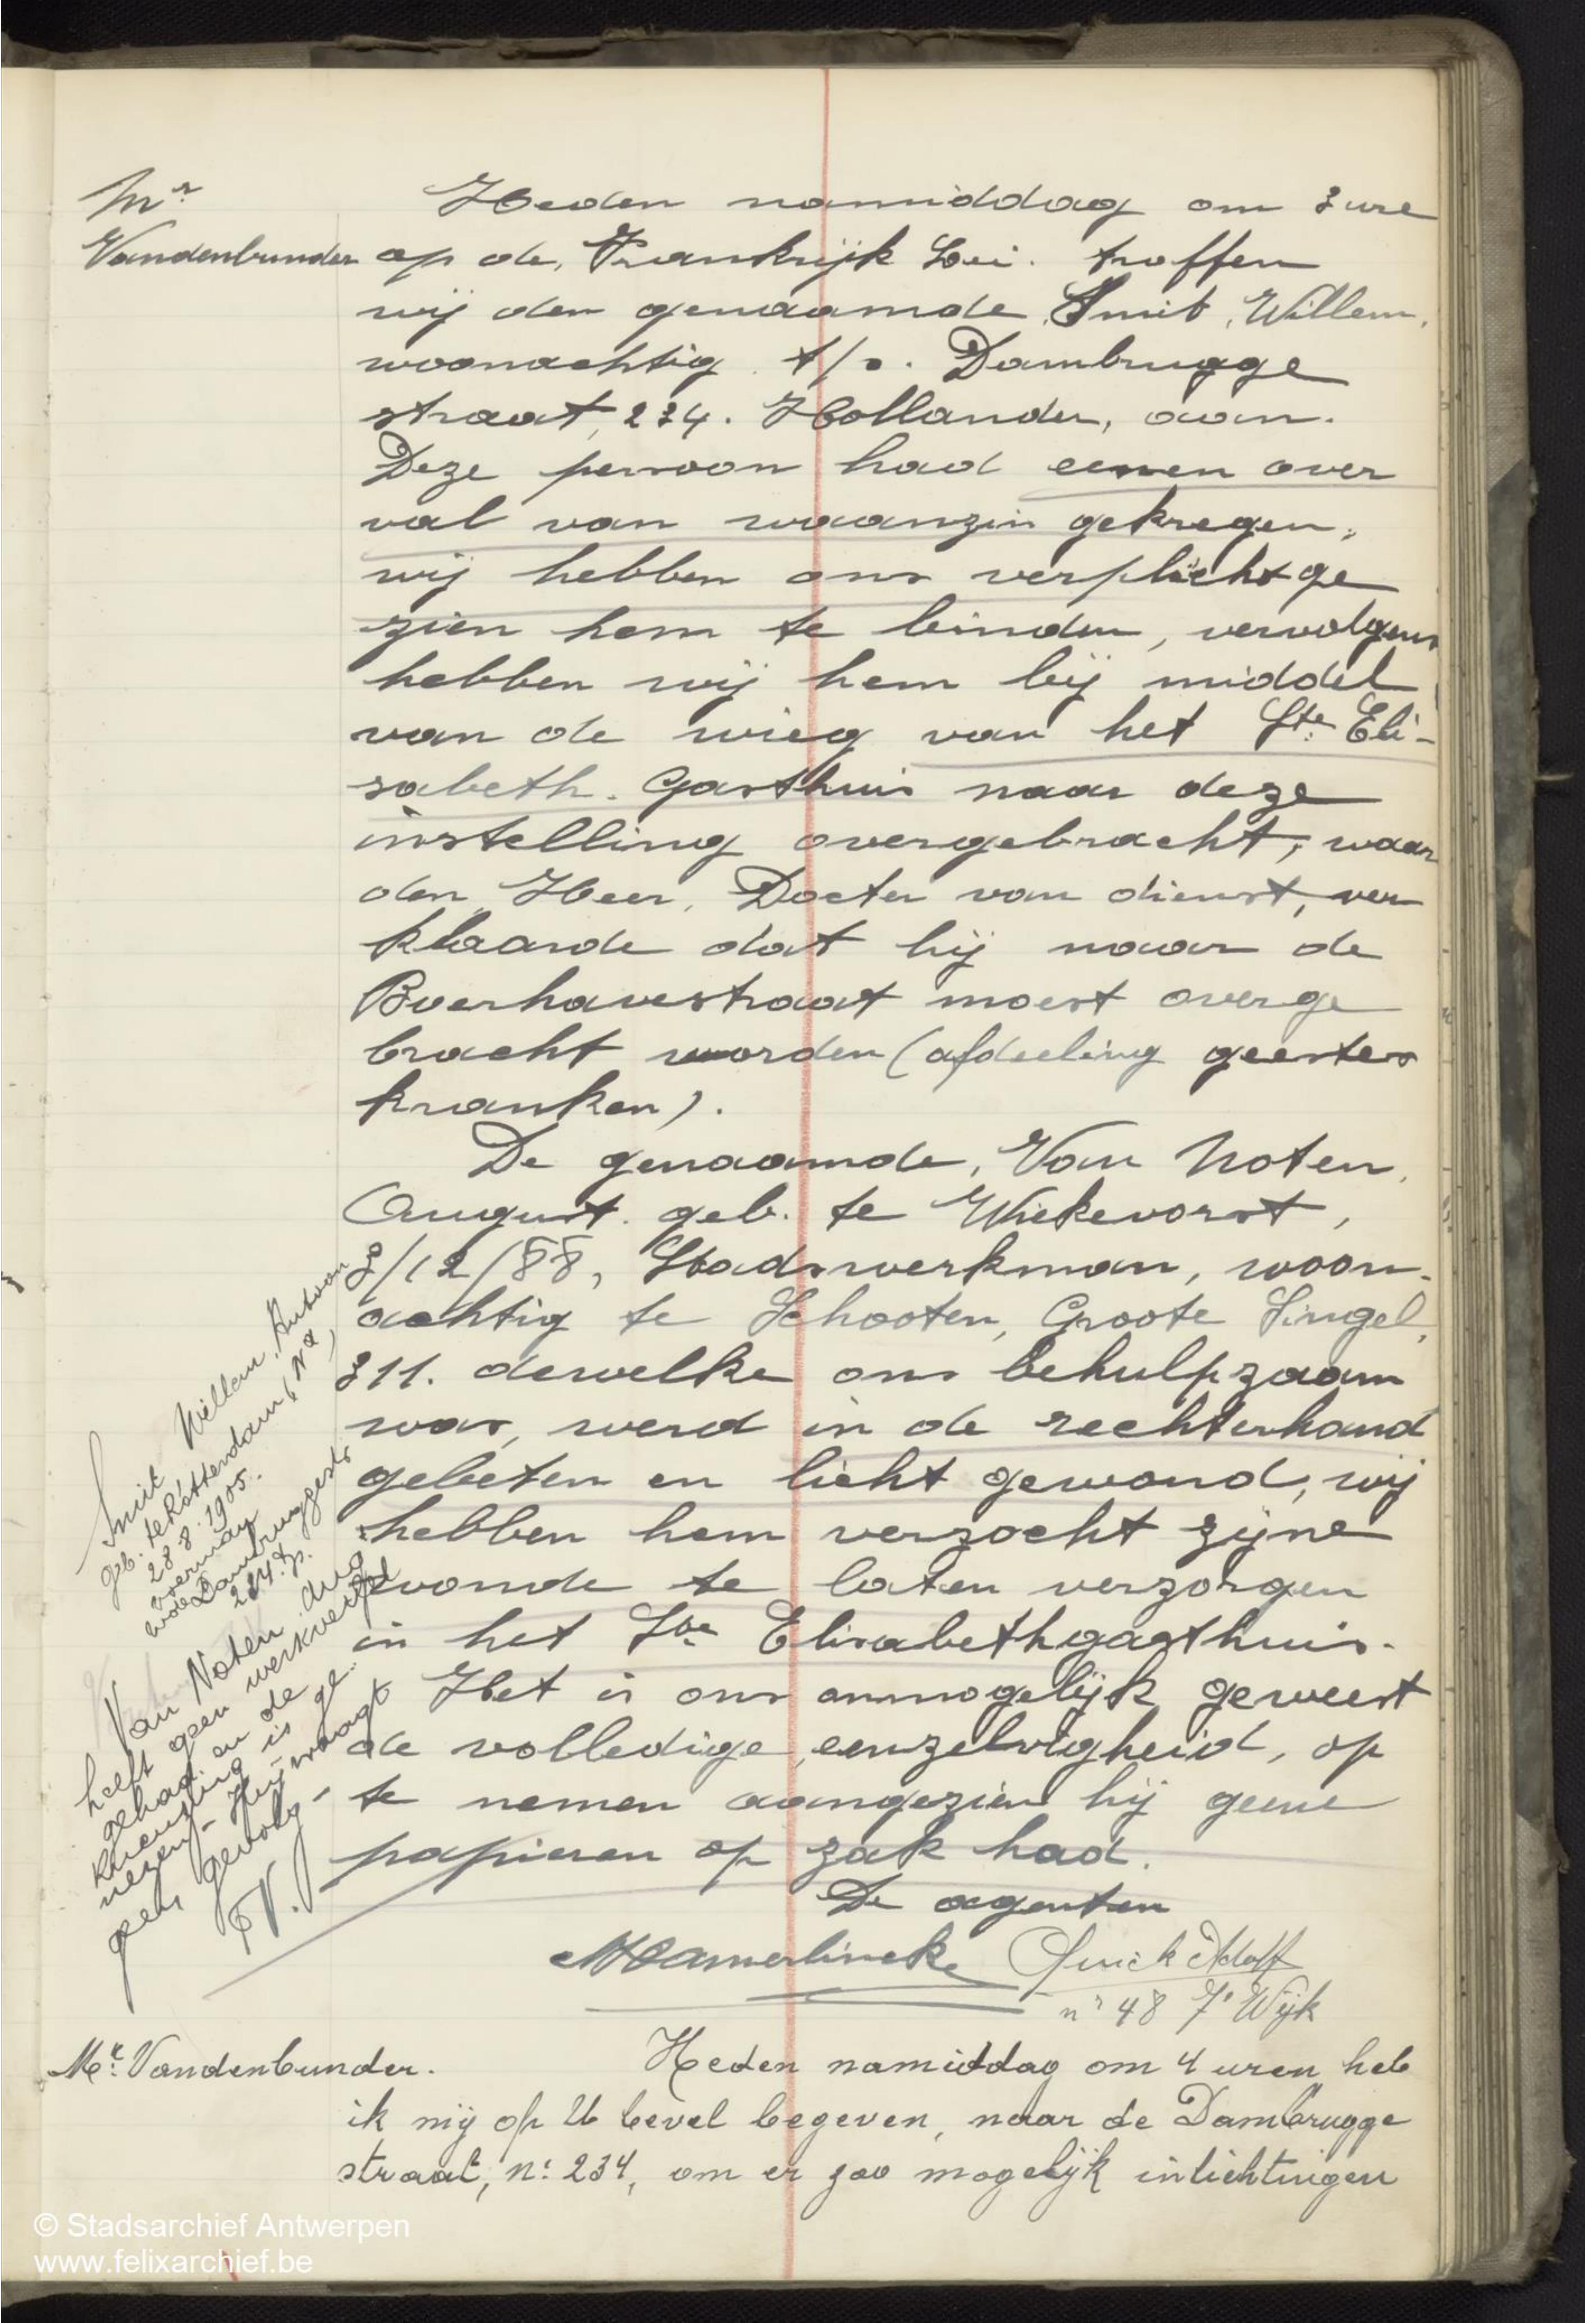 Mr
Vandenbunder
Heden namiddag om 3 ure
op de, Frankrijk Lei. troffen
wij den genaamde Smit, Willem,
woonachtig t/s. Dambrugge
straat, 234. Hollander, aan.
Deze persoon had eenen over
val van waanzin gekregen,
wij hebben ons verplicht ge
zien hem te binden, vervolgens
hebben wij hem bij middel
van de wieg van het Ste. Eli-
sabeth. Gasthuis naar deze
instelling overgebracht, waar
den Heer, Docter van dienst, ver
klaarde dat hij naar de
Boerhavestraat moest overge
bracht worden (afdeeling geestes
kranken).
De genaamde, Van Noten,
August. geb. te Wiekevorst,
8/12/88, Stadswerkman, woon-
achtig te Schooten, Groote Singel,
311. dewelke ons behulpzaam
was, werd in de rechterhand
gebeten en licht gewond, wij
hebben hem verzocht zijne
wonde te laten verzorgen
in het Ste Elisabethgasthuis.
Het is ons onmogelijk geweest
de volledige eenzelvigheid, op
te nemen aangezien hij geene
papieren op zak had.
De agenten
Quick Adolf
nr 48 7e Wijk
Smit Willem, Antoon
geb. te Rotterdam (Nd)
28.8.1905.
woe Dambruggestr
234. t/s.
Van Noten Aug
heeft geen werkverlet
gehad en de
kwetsing is ge-
nezen - Hij vraagt
geen gevolg -
Mr. Vandenbunder.
Heden namiddag om 4 uren heb
ik mij op Ub bevel begeven, naar de Dambrugge
straat, nr. 234, om er zoo mogelijk inlichtingen
© Stadsarchief Antwerpen
www.felixarchief.be